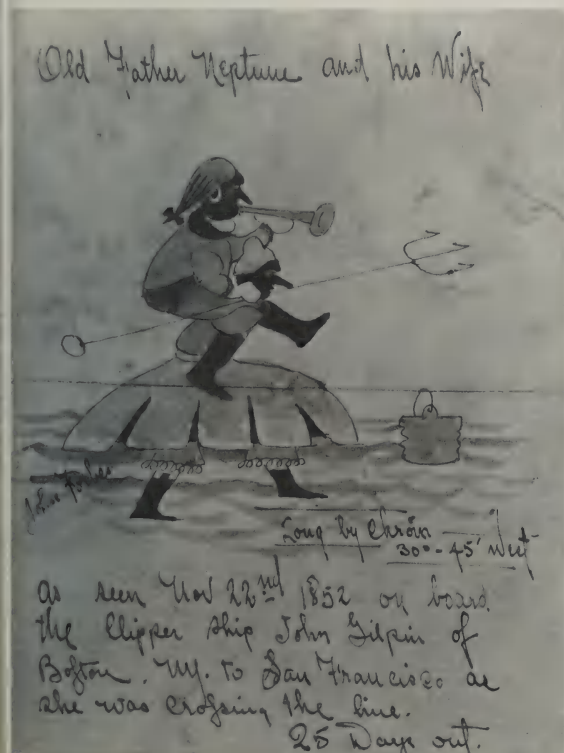 Old Father Neptune and his Wife
John Forbes
Long by Chron
30° - 45' West
as seen Nov 22nd 1852 on board
the Clipper Ship John Gilpin of
Bofton. NY. to San Francisco as
she was crofsing the line.
25 Days out.